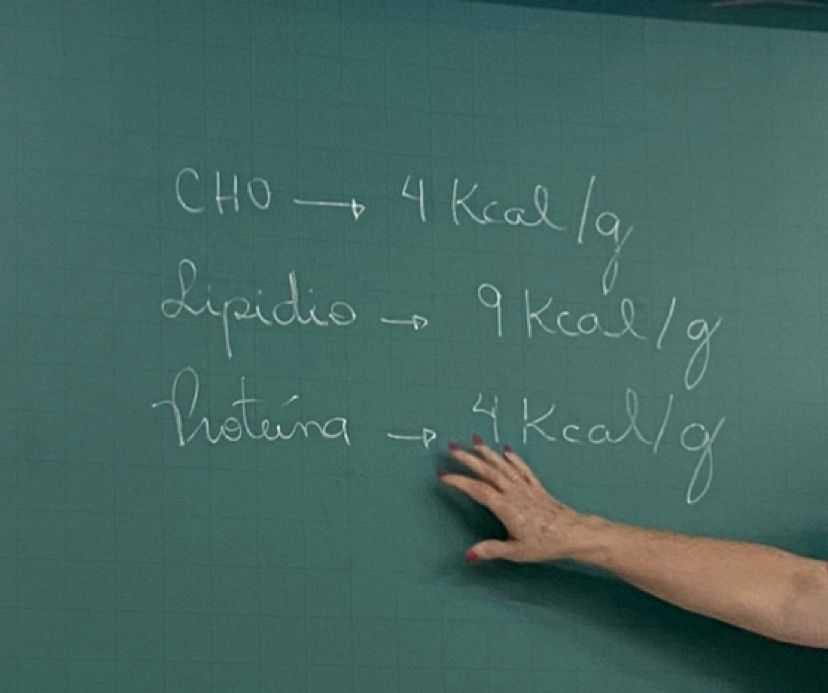 CHO → 4 Kcal/g
Lipidio → 9 Kcal/g
Proteína → 4 Kcal/g